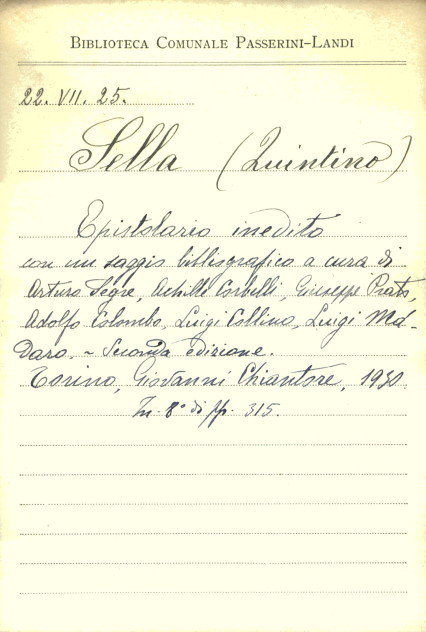 BIBLIOTECA COMUNALE PASSERINI-LANDI
22. VII. 25.
Sella (Quintino)
Epistolario inedito
con un saggio bibliografico a cura di
Arturo Segre, Achille Corbelli, Giuseppe Prato,
Adolfo Colombo, Luigi Collino, Luigi Ma-
daro. ~ Seconda edizione.
Torino, Giovanni Chiantore, 1930
In-8° di pp. 315.